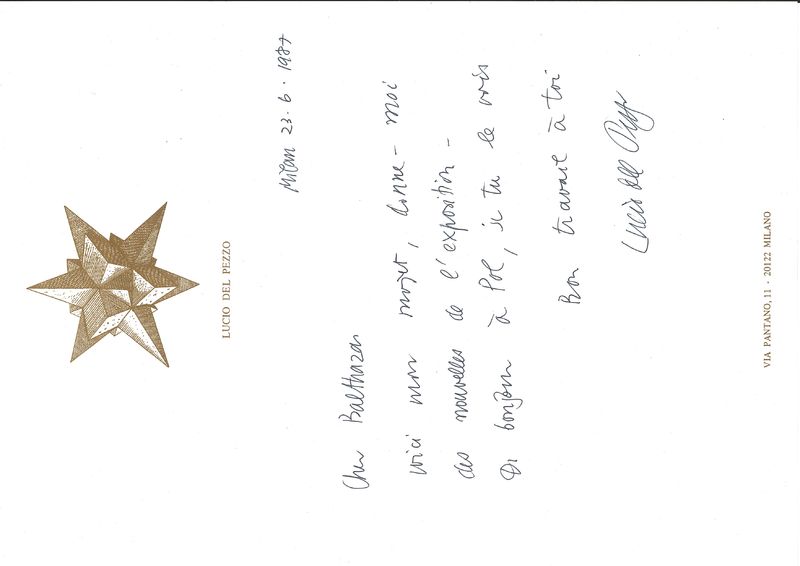 LUCIO DEL PEZZO
Milan 23.6.1987
Cher Balthazar
voici mon projet, donne-moi
des nouvelles de l'exposition -
Di bonjour à Pol, si tu le vois
Bon travail à toi
Lucio del Pezzo
VIA PANTANO, 11 - 20122 MILANO